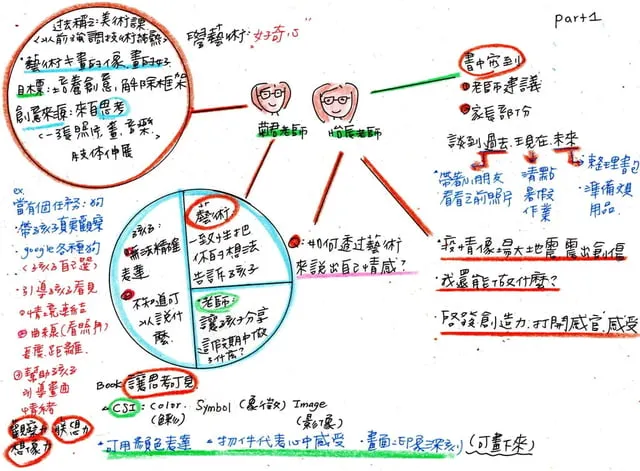 part1
過去稱之美術課
<以前強調技術誇飾>
•藝術≠畫的像、畫的好
目標:培養創意,解除框架
創意來源:來自思考
(一張照片、畫、音樂、
肢體伸展
學藝術:"好奇心"
君老師
老師
書中寫到
老師建議
家長部分
談到過去、現在、未來
帶著小朋友
看看之前照片
清點
暑假
作業
整理書包
準備須
用品
ex.
當有個任務:狗
•帶孩子真實觀察
•google各種狗
(孩子自己選)
•引導孩子看見
•情境連結
由來(看照片)
長度、距離
幫助孩子
引導畫曲
情緒
觀察力 聯想力
想像力
孩子:
無法精確
表達
不知道可
以說什
麼
藝術:
一致性把
你的想法
告訴孩子
老師:
讓孩子分享
這假期中做
了什麼?
Q:如何透過藝術
來說出自己情感?
•疫情像一場大地震震出創傷
•我還能做什麼?
•啟發創造力,打開感官、感受
Book:讓思考可見
CSI:color. Symbol(象徵) Image
(顏色) (影像)
可用顏色表達 物件代表心中感受 •畫面:印象深刻(可畫下來)